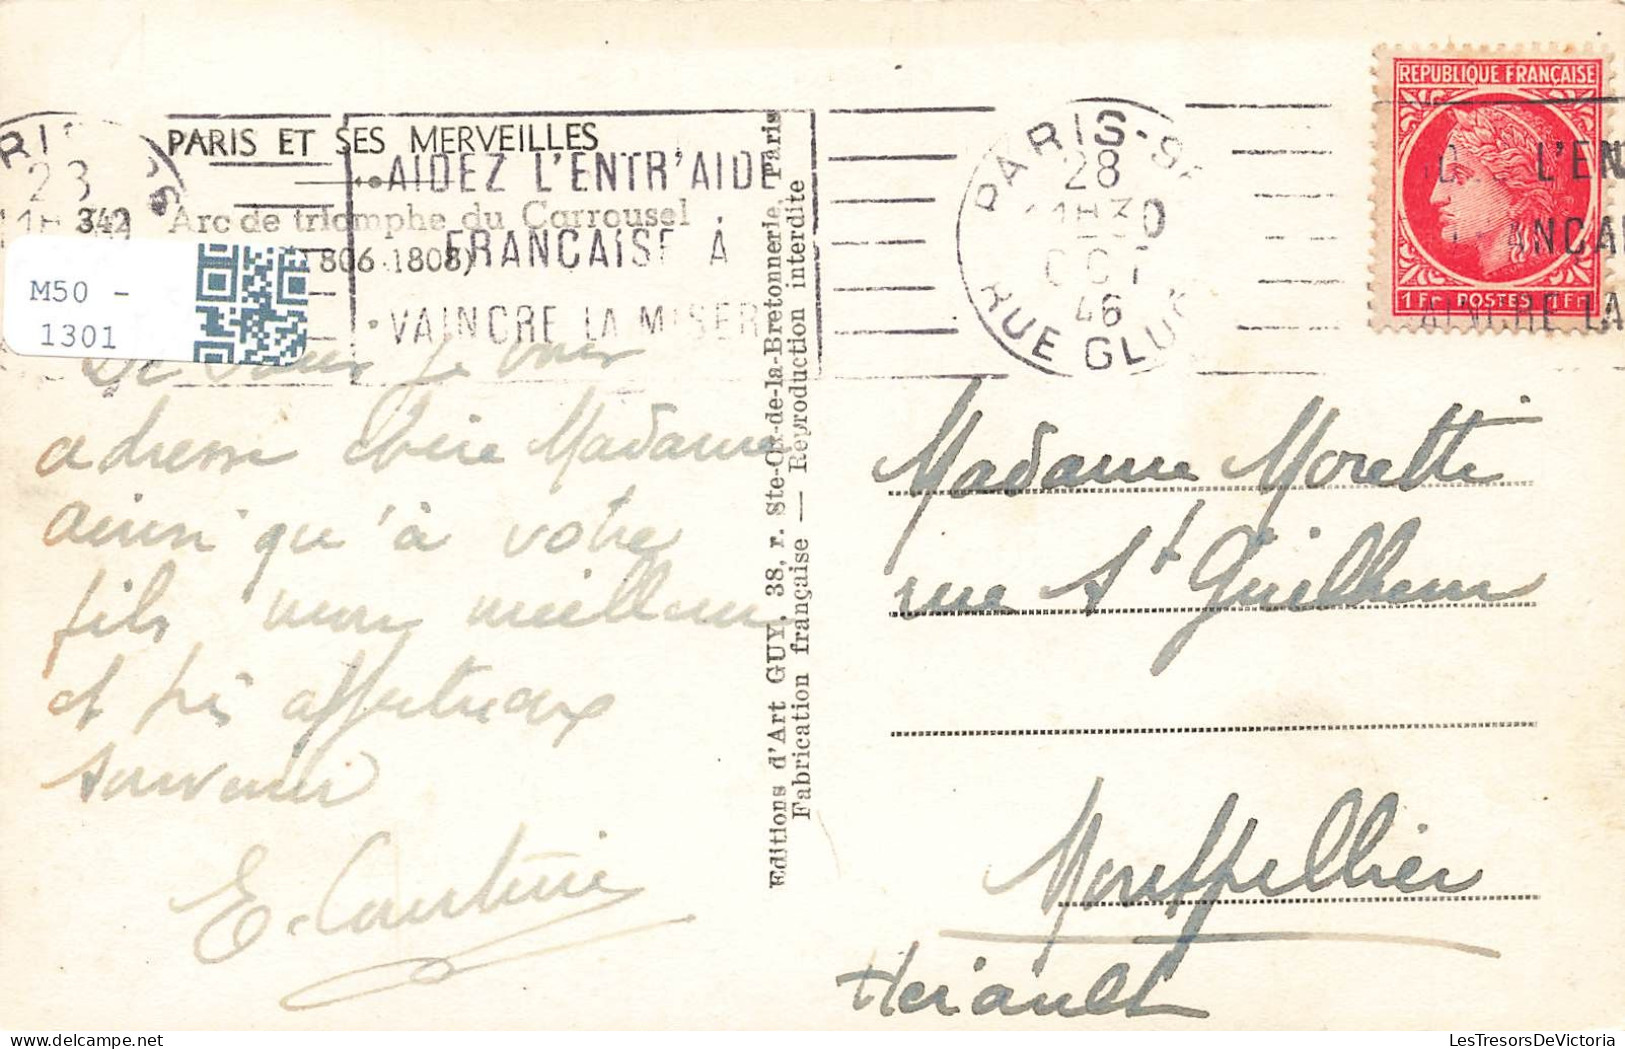 PARIS ET SES MERVEILLES
342 Arc de triomphe du Carrousel
(1806-1808)
M50 -
1301
AIDEZ L'ENTR'AIDE
FRANCAISE A
VAINCRE LA MISERE
28
PARIS
28
11H30
OCT
46
RUE GLUCK
REPUBLIQUE FRANÇAISE
1 Fr POSTES 1 Fr
L'EN
ANCAI
VAINCRE LA
je vous
adresse chère Madame
ainsi qu'à votre
fils mon meilleur
et très affectueux
souvenir
Editions d'Art GUY, 38, r. Ste-Cx-de-la-Bretonnerie, Paris
Fabrication française — Reproduction interdite
Madame Moretti
rue St Guilhem
Montpellier
Hérault
LesTresorsDeVictoria